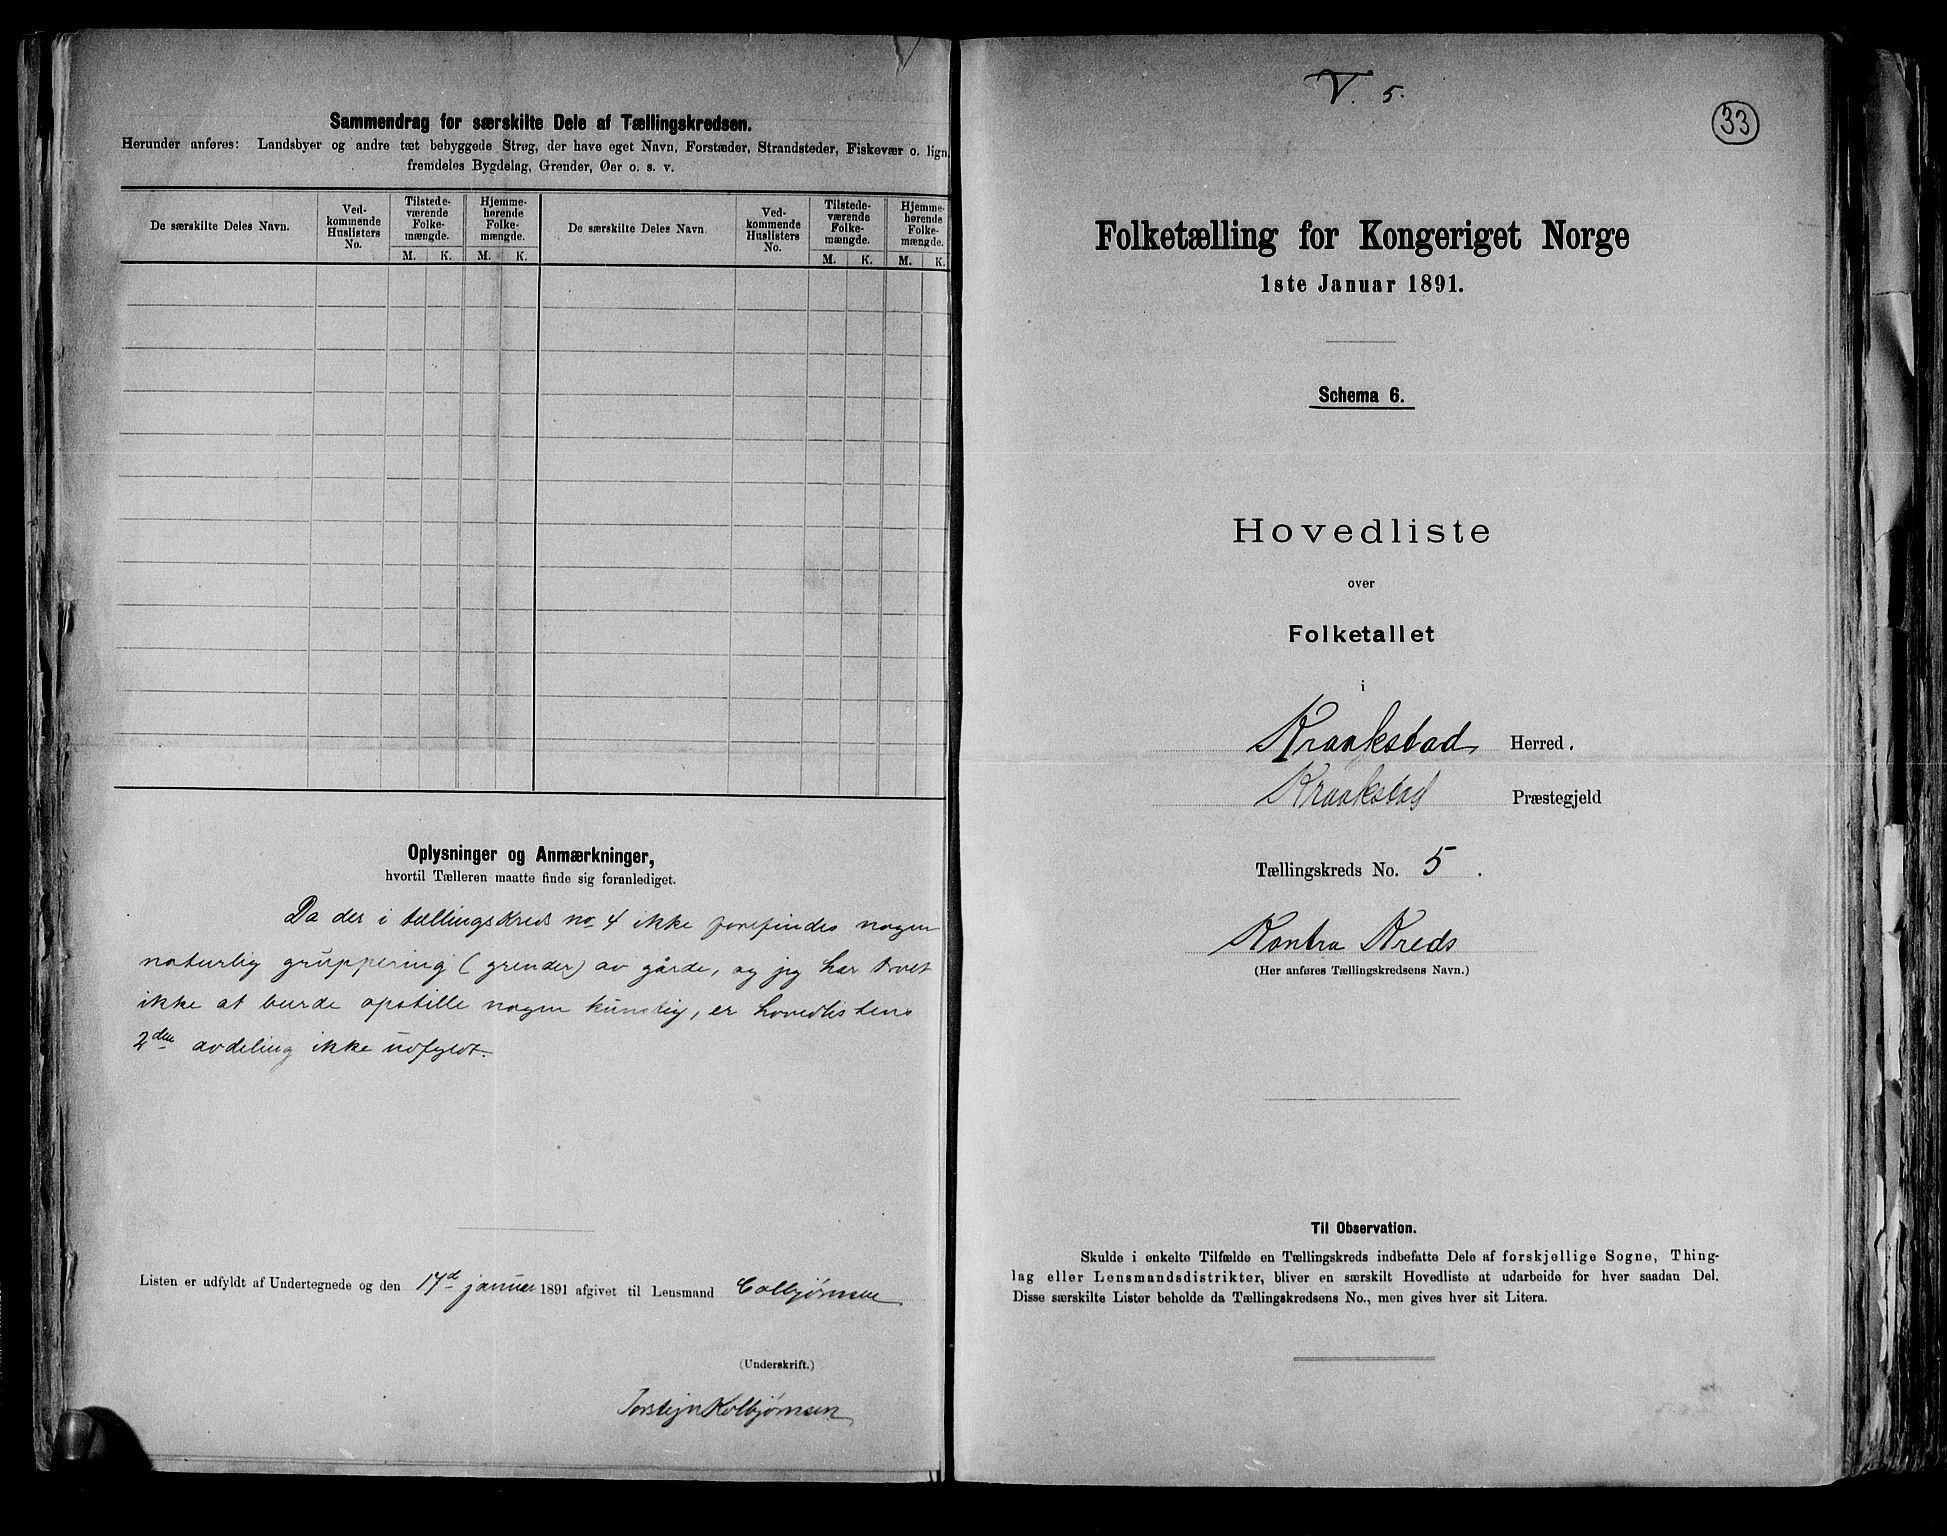 Sammendrag for særskilte Dele af Tællingskredsen.
Herunder anføres: Landsbyer og andre tæt bebyggede Strøg, der have eget Navn, Forstæder, Strandsteder, Fiskevær o. lign,
fremdeles Bygdelag, Grender, Øer o. s. v.
De særskilte Deles Navn.
Ved-
kommende
Huslisters
No.
Tilstede-
værende
Folke-
mængde.
Hjemme-
hørende
Folke-
mængde.
De særskilte Deles Navn
Ved-
kommende
Huslisters
No.
Tilstede-
værende
Folke-
mængde.
Hjemme-
hørende
Folke-
mængde.
M. K. M. K. M. K. M. K.
Oplysninger og Anmærkninger,
hvortil Tælleren maatte finde sig foranlediget.
Da der i tællingskreds no. 4 ikke forefindes nogen
naturlig gruppering (grender) av gårde, og jeg har troet
ikke at burde opstille nogen kunstig, er hovedlistens
2den avdeling ikke udfyldt.
Listen er udfyldt af Undertegnede og den 17d januar 1891 afgivet til Lensmand Colbjørnsen
(Underskrift.)
Torstejn Kolbjørnsen
V. 5.
33
Folketælling for Kongeriget Norge
1ste Januar 1891.
Schema 6.
Hovedliste
over
Folketallet
i
Kraakstad Herred.
Kraakstad Præstegjeld
Tællingskreds No. 5.
Kontra Kreds
(Her anføres Tællingskredsens Navn.)
Til Observation.
Skulde i enkelte Tilfælde en Tællingskreds indbefatte Dele af forskjellige Sogne, Thing-
lag eller Lensmandsdistrikter, bliver en særskilt Hovedliste at udarbeide for hver saadan Del.
Disse særskilte Lister beholde da Tællingskredsens No., men gives hver sit Litera.